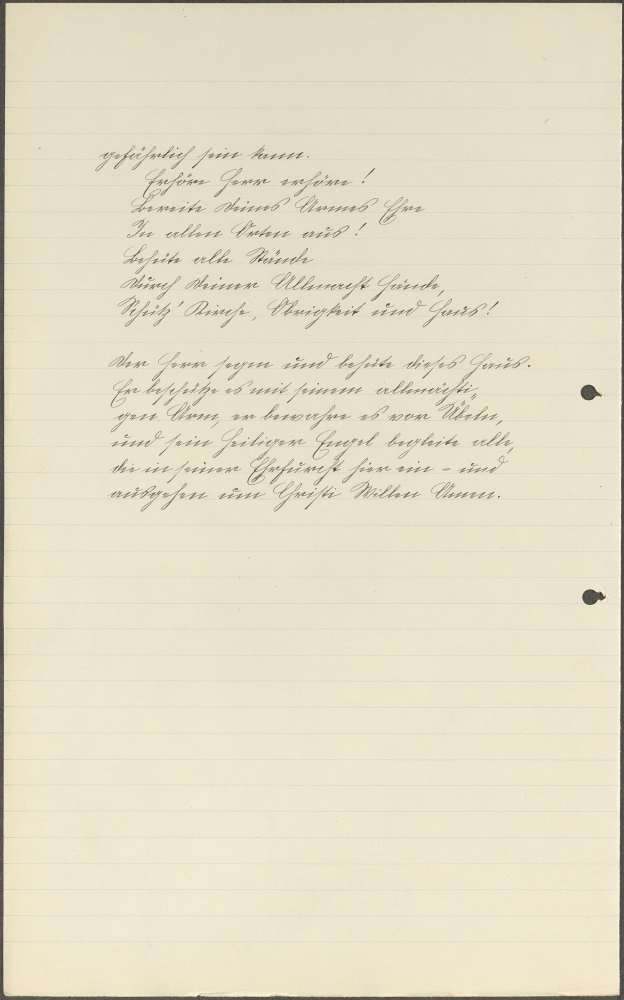 gefährlich sein kann.
Erhöre Herr erhöre!
Bereite Deines Armes Ehre
In allen Orten aus!
Behüte alle Stände
Durch Deiner Allmacht Hände,
Schütz' Kirche, Obrigkeit und Haus!
Der Herr segne und behüte dieses Haus.
Er beschütze es mit seinem allmächti„
gen Arm, er bewahre es vor Übeln,
und sein heiliger Engel begleite alle,
die in seiner Ehrfurcht hier ein - und
ausgehen um Christi Willen Amen.